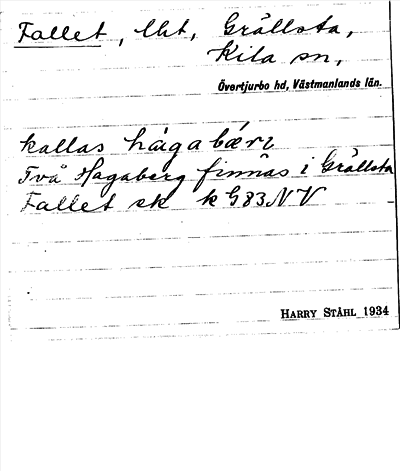 Fallet, lht, Grällsta,
Kila sn,
Övertjurbo hd, Västmanlands län.
kallas hágabǽrɩ
Två Hagaberg finnas i Grällsta
Fallet ek k G83NV
HARRY STÅHL 1934